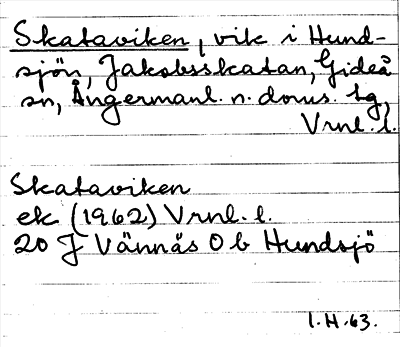 Skataviken, vik i Hund-
sjön, Jakobsskatan, Gideå
sn, Ångermanl. n. doms. tg,
Vrnl. l.
Skataviken
ek (1962) Vrnl. l.
20 J Vännäs O b Hundsjö
I.H.63.